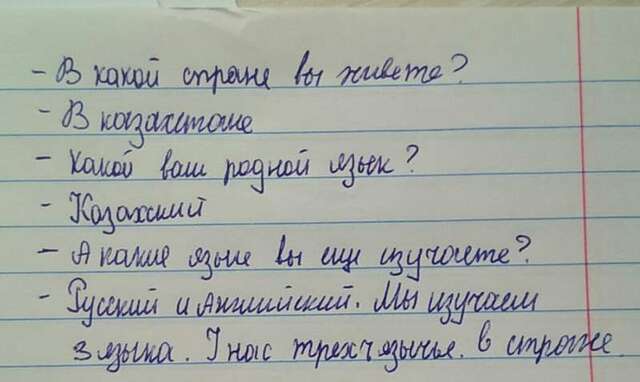 - В какой стране вы живете?
- В казахстане
- Какой ваш родной язык?
- Казахский
- А какие языи вы еще изучаете?
- Русский и Английский. Мы изучаем
3 языка. У нас трехъязычья. в стране.